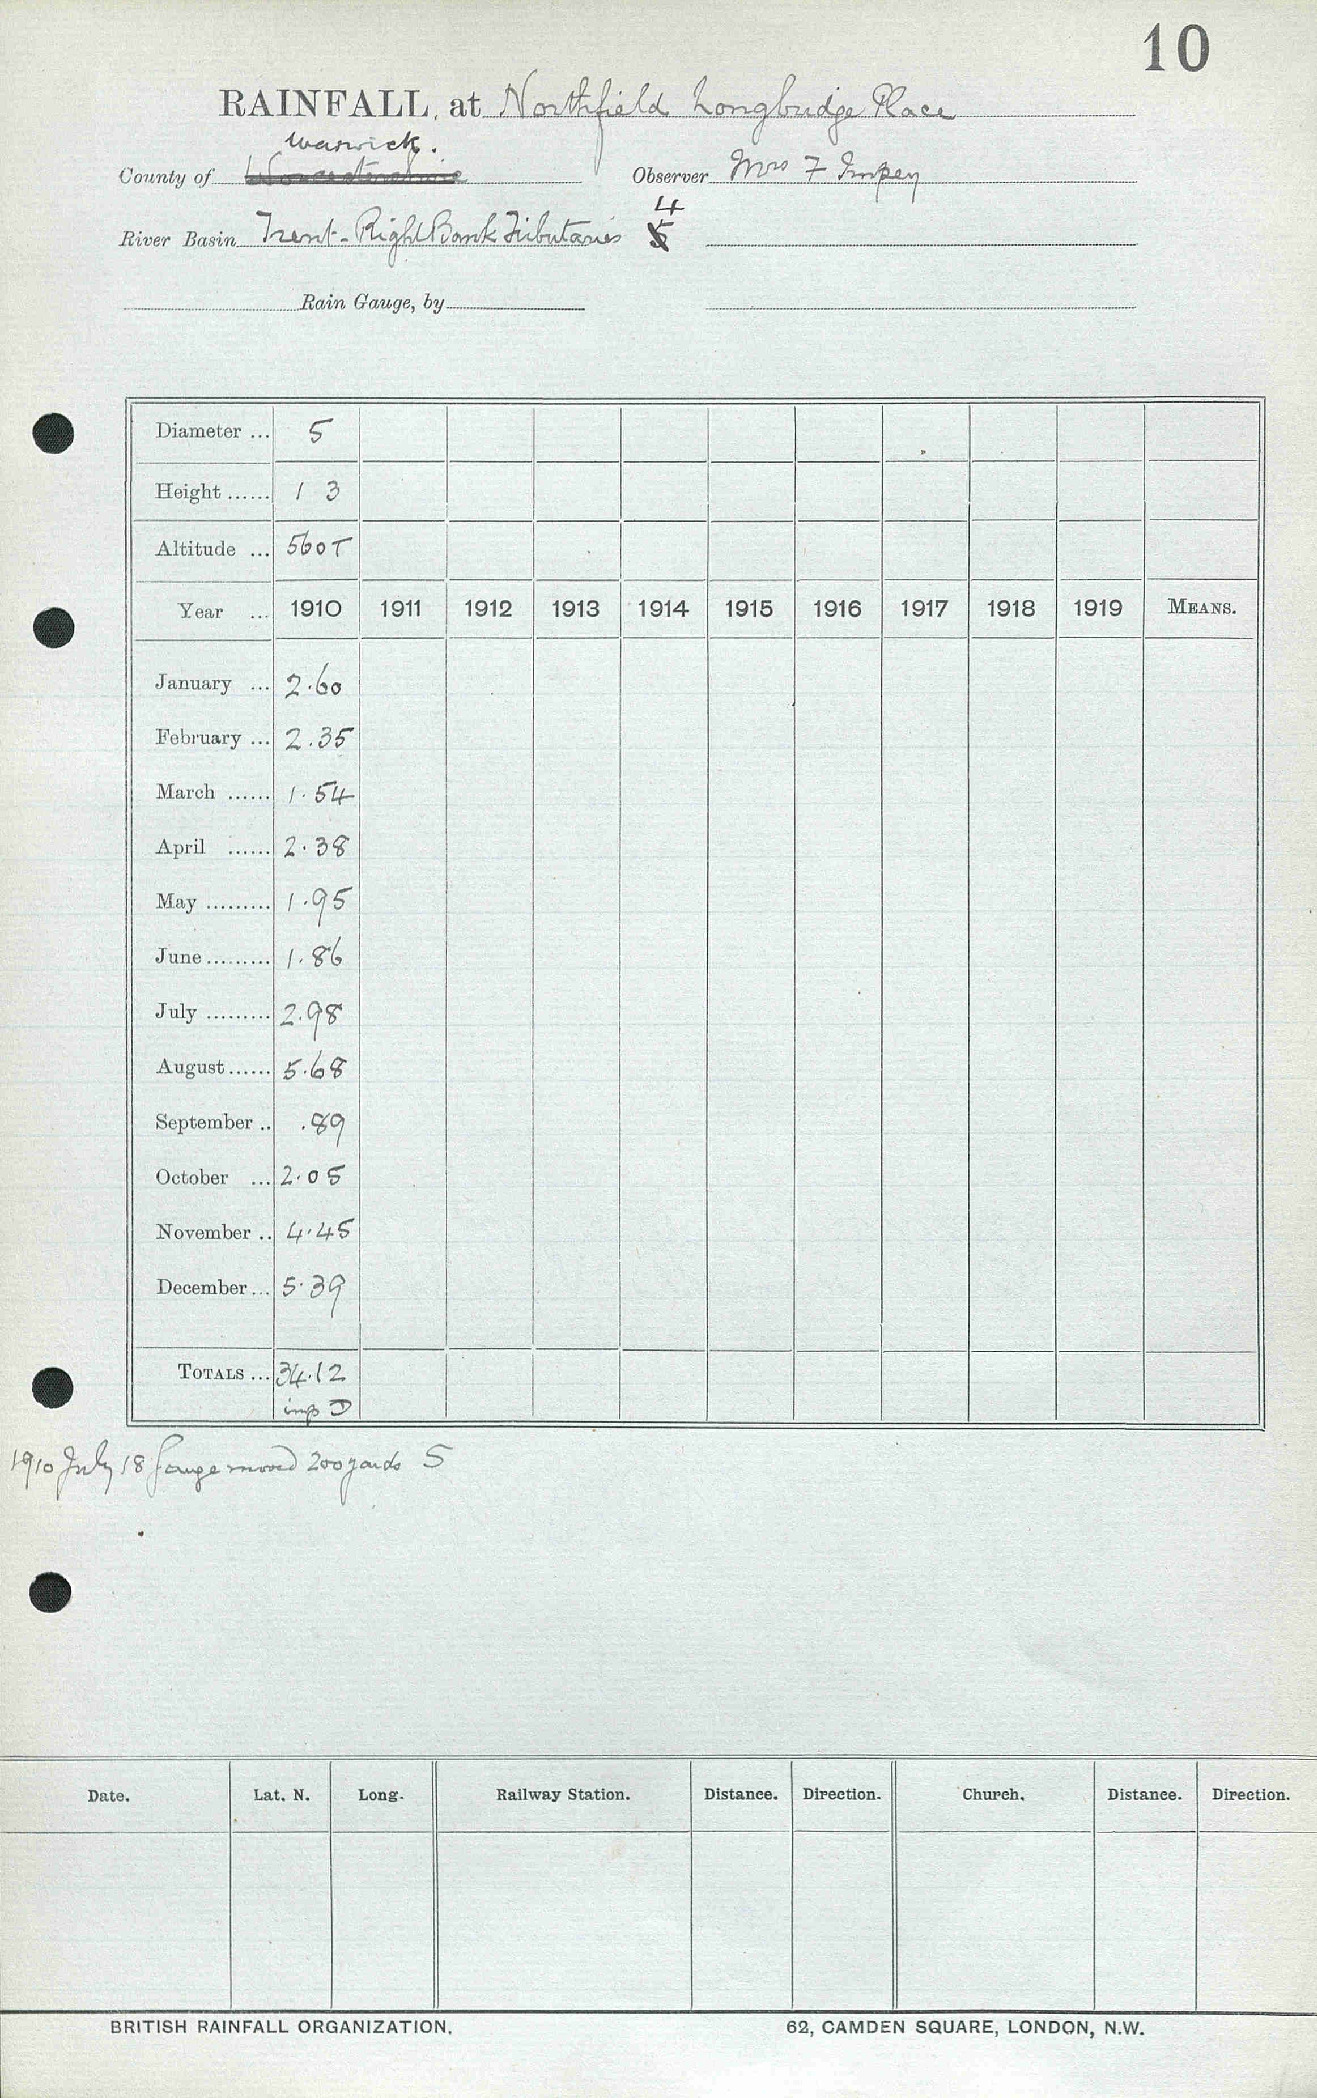 10
RAINFALL, at Northfield Longbridge Place
Warwick.
County of Worcestershire Observer Mrs F Impey
4
River Basin Trent-Right Bank Tributaries 5
Rain Gauge, by
Diameter ... 5
Height ...... 1 3
Altitude ... 560 T
Year ... 1910 1911 1912 1913 1914 1915 1916 1917 1918 1919 MEANS.
January ... 2.60
February ... 2.35
March ...... 1.54
April ...... 2.38
May ......... 1.95
June ......... 1.86
July ......... 2.98
August ...... 5.68
September .. .89
October ... 2.05
November .. 4.45
December ... 5.39
TOTALS ... 34.12
imp D
1910 July 18 Gauge moved 200 yards S
Date. Lat. N. Long. Railway Station. Distance. Direction. Church. Distance. Direction.
BRITISH RAINFALL ORGANIZATION. 62, CAMDEN SQUARE, LONDON, N.W.